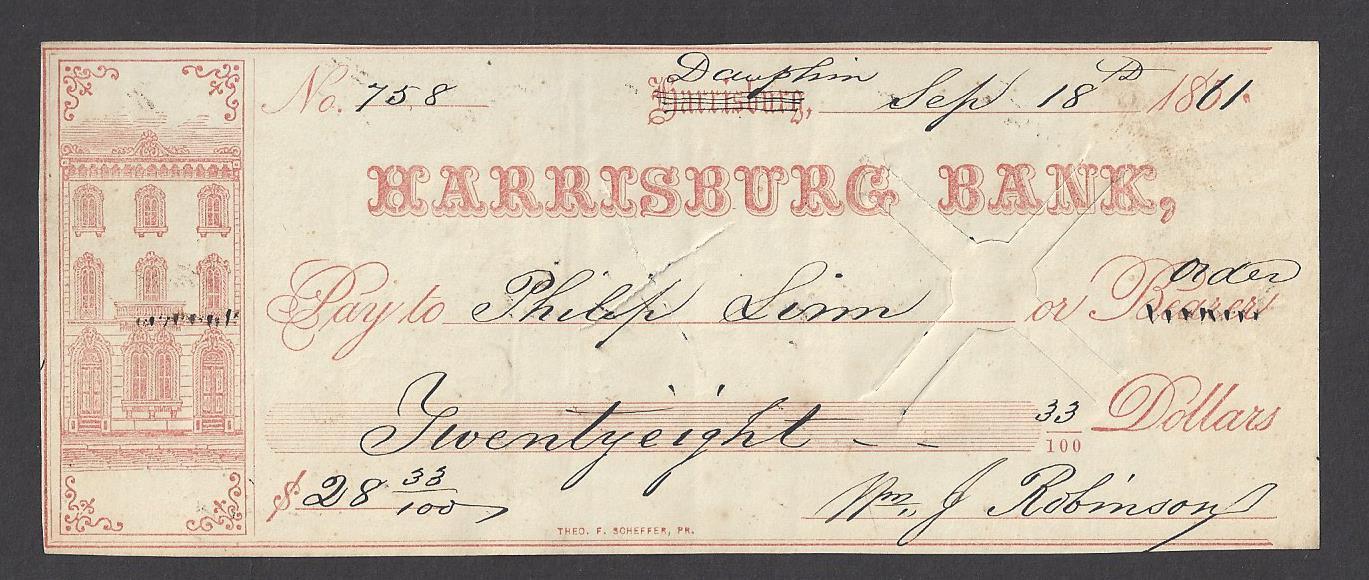 Dauphin
No. 758 Harrisburg, Sep 18th 1861.
HARRISBURG BANK,
order
Pay to Philip Linn or Bearer
Twentyeight -- 33/100 Dollars
$ 28 33/100
Wm. J Robinson
THEO. F. SCHEFFER, PR.